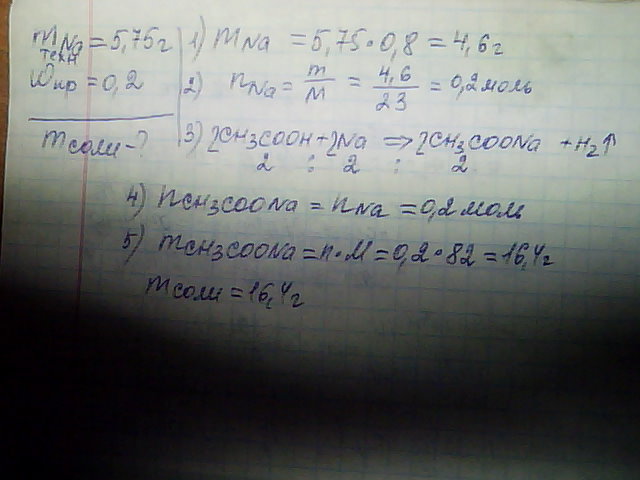 mNa = 5,75г
техн
Wпр = 0,2
mсоли - ?
1) mNa = 5,75 · 0,8 = 4,6г
2) nNa = m/M = 4,6/23 = 0,2 моль
3) 2CH3COOH + 2Na => 2CH3COONa + H2↑
2 : 2 : 2
4) nCH3COONa = nNa = 0,2 моль
5) mCH3COONa = n · M = 0,2 · 82 = 16,4г
mсоли = 16,4г